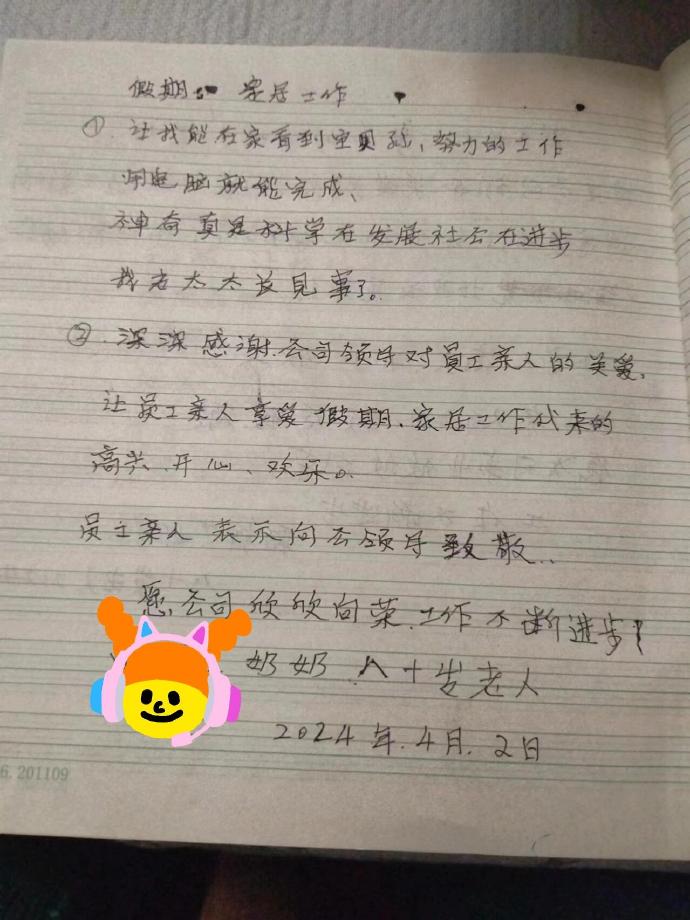 假期: 家居工作
①.让我能在家看到宝贝孙,努力的工作
用电脑就能完成、
神奇真是科学在发展社会在进步
我老太太长见事了。
②.深深感谢.公司领导对员工亲人的关爱.
让员工亲人享爱假期.家居工作代来的
高兴.开心、欢乐。
员工亲人表示向公领导致敬..
愿公司欣欣向荣.工作不断进步!
奶奶 八十岁老人
2024年.4月.2日
6.201109